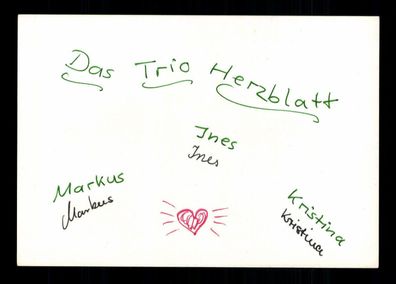 Das Trio Herzblatt
Ines
Ines
Markus
Markus
Kristina
Kristina